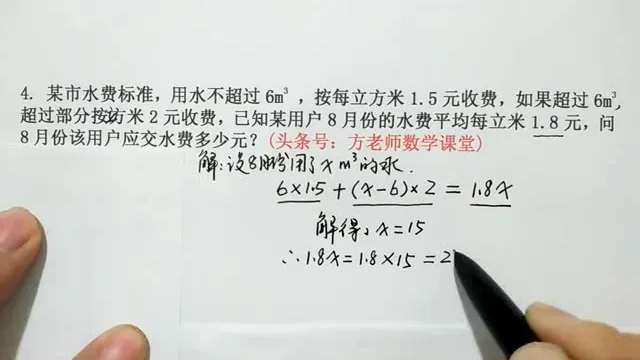 4. 某市水费标准，用水不超过 6m³，按每立方米 1.5 元收费，如果超过 6m³，
超过部分按立方米 2 元收费，已知某用户 8 月份的水费平均每立米 1.8 元，问
8 月份该用户应交水费多少元？(头条号：方老师数学课堂)
解:设8月份用了 x m³的水.
6×1.5+(x-6)×2=1.8x
解得，x=15
∴1.8x=1.8×15=2